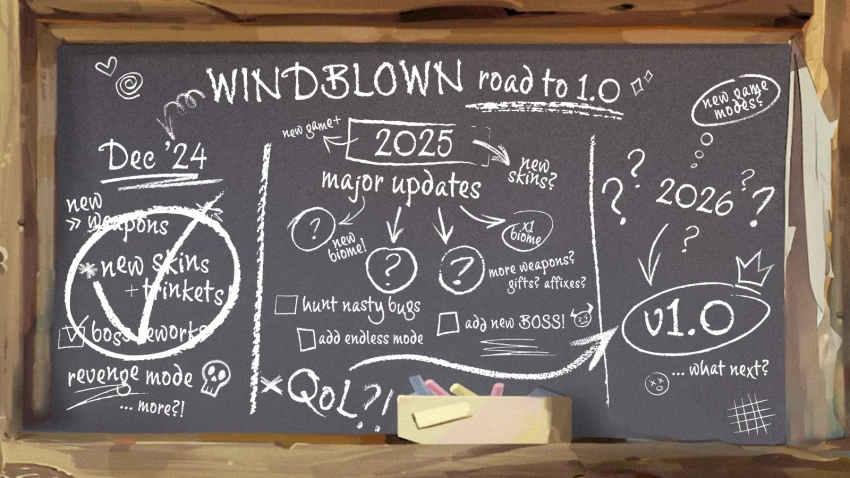 WINDBLOWN road to 1.0
Dec '24
new
» weapons
* new skins
+ trinkets
boss reworks
revenge mode
... more?!
new game+
2025
new
skins?
major updates
?
new
biome!
?
?
x1
biome
more weapons?
gifts? affixes?
hunt nasty bugs
add endless mode
add new BOSS!
× QoL?!
new game
modes?
? ? 2026 ? ?
?
v1.0
... what next?